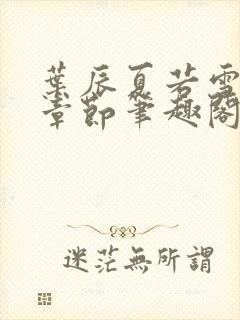 葉辰夏若雪
章節筆趣閣
迷茫無所謂